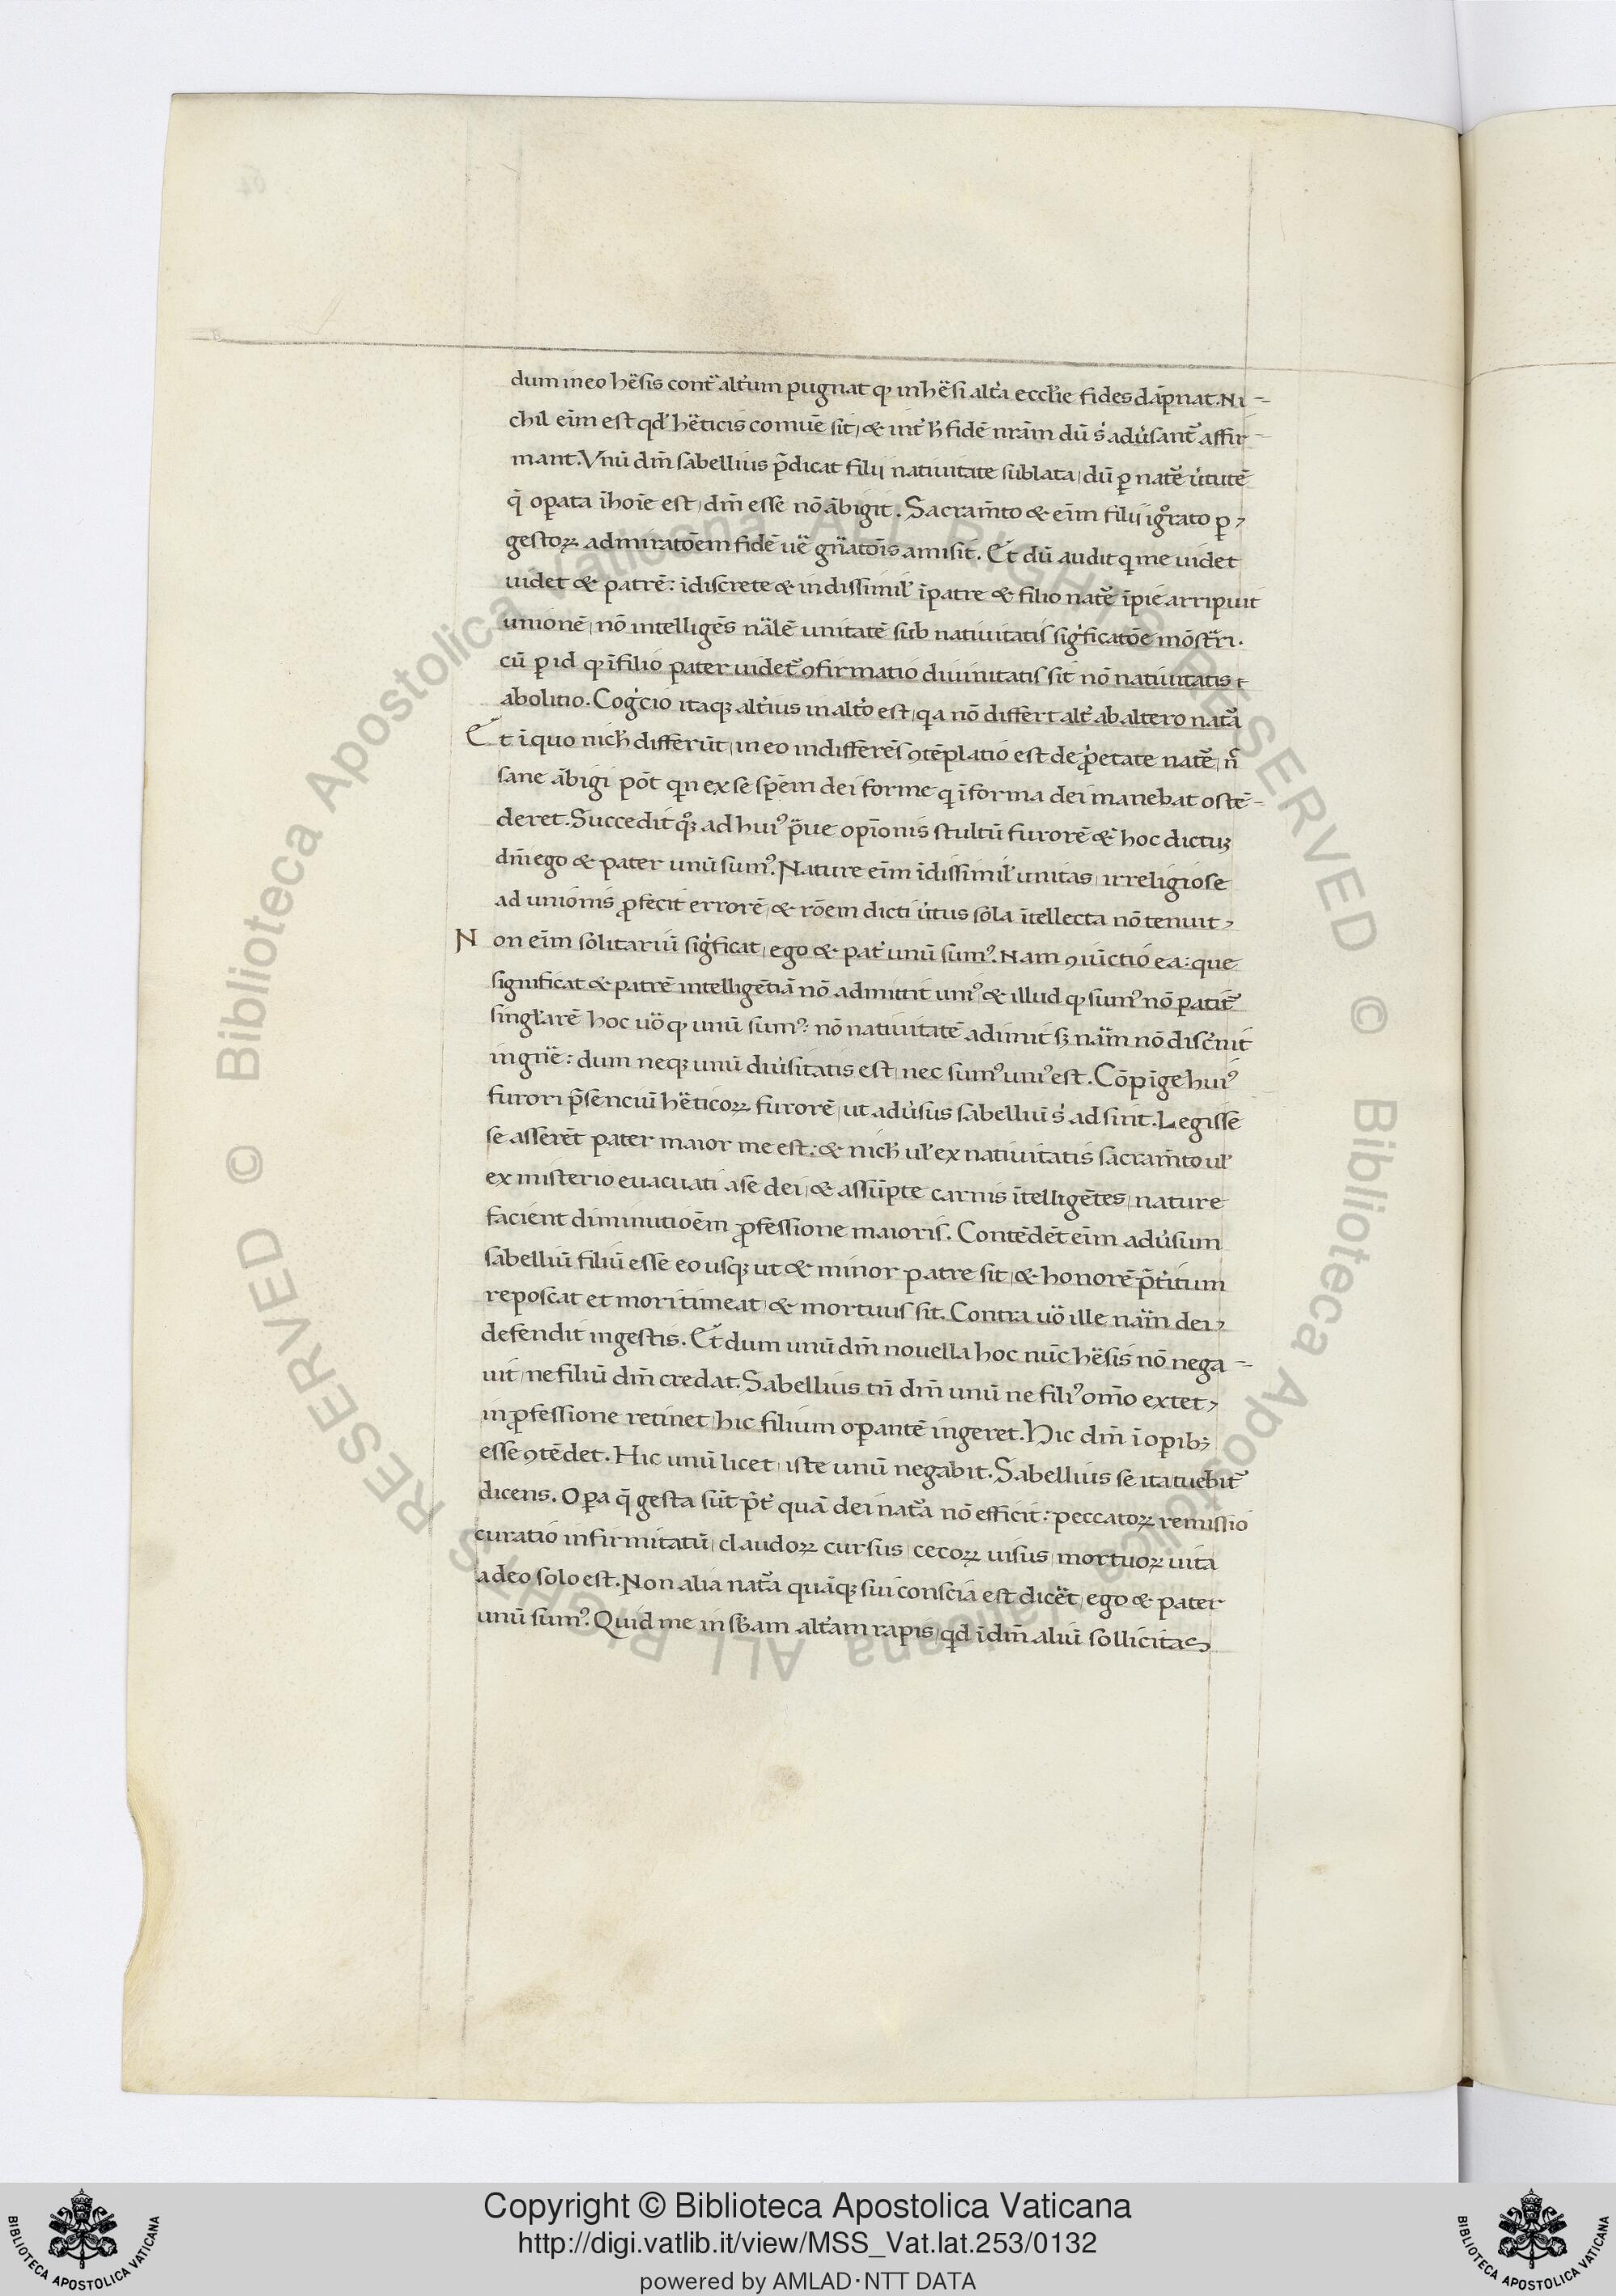 dum in eo hēsis contᵃ altum pugnat qͥ in hēsi altᵃ eccl̄ie fides dāpnat. Ni-
chil eīm est qd̓ hēticis comūe sit, & int̓ h̓ fidē nr̄am dū s̓ adūsant̄ affir-
mant. Vnū dm̄ sabellius p̄dicat filii nativitate sublata, dū ꝑ natē v̓tutē
q̄ oꝑata ī hoīe est, dm̄ esse nō ābigit. Sacram̄to & eīm filii igͦrato ꝑ
gestoꝝ admiratōem fidē uē gn̄atōis amisit. Et dū audit qͥ me uidet
uidet & patrē: īdiscrete & indissimil̓ ī patre & filio natē īpie arripuit
unionē, nō intelligēs nālē unitatē sub nativitatis sigͥficatōe mōstri.
cū ꝑ id qͥ ī filio pater uidet̄ ꝯfirmatio diuinitatis sit nō nativitatis
abolitio. Cogͥcio itaqꝫ alt̓ius in alt̓o est, qͥa nō differt alt̓ ab altero natᵃ
Et ī quo nich̓ differūt, in eo indifferēs ꝯtēplatio est de ꝓetate natē, n̄
sane ābigi pōt qn ex se spēm dei forme qͥ ī forma dei manebat ostē-
deret. Succedit qͦꝫ ad huiꝰ p̄ue opīonis stultū furorē & hoc dictuꝫ
dn̄i ego & pater unū sumꝰ. Nature eīm īdissimil̓ unitas, irreligiose
ad unionis ꝓfecit errorē, & rōem dicti ūtus sola ītellecta nō tenuit
Non eīm solitariū sigͥficat, ego & pat̓ unū sumꝰ. Nam ꝯuictio ea: que
significat & patrē intelligētiā nō admittit unīꝰ & illud qͥ sumꝰ nō patit̄
singl̓arē hoc uō qͥ unū sumꝰ: nō nativitatē adimit sꝫ nām nō disc̓nit
in gn̄e: dum neqꝫ unū diūsitatis est, nec sumꝰ uniꝰ est. Cōpīge huiꝰ
furori p̄senciū hēticoꝝ furorē, ut adūsus sabelliū s̓ ad sint. Legisse
se asserēt pater maior me est: & nich̓ ul̓ ex nativitatis sacram̄to ul̓
ex misterio euacuati a se dei, & assūpte carnis ītelligētes, nature
facient diminutioēm ꝓfessione maioris. Contēdēt eīm adūsum
sabelliū filiū esse eo usqꝫ ut & minor patre sit, & honorē p̄titum
reposcat et mori timeat, & mortuus sit. Contra uō ille nām dei
defendit in gestis. Et dum unū dm̄ nouella hoc nūc hēsis nō nega-
uit, ne filiū dm̄ credat. Sabellius tn̄ dm̄ unū ne filiꝰ om̄o extet
in ꝓfessione retinet, hic filium oꝑantē ingeret. Hic dm̄ ī oꝑibꝫ
esse ꝯtēdet. Hic unū licet, iste unū negabit. Sabellius se ita tuebit̄
dicens. Oꝑa q̄ gesta sūt p̄t̓ quā dei natᵃ nō efficit: peccatoꝝ remissio
curatio infirmitatū, claudoꝝ cursus, cecoꝝ uisus, mortuoꝝ uita
a deo solo est. Non alia natᵃ quāqꝫ sui conscia est dicēt, ego & pater
unū sumꝰ. Quid me in sb̄am alt̓am rapis, qd̓ ī dm̄ aliū sollicitas
Copyright © Biblioteca Apostolica Vaticana
http://digi.vatlib.it/view/MSS_Vat.lat.253/0132
powered by AMLAD·NTT DATA